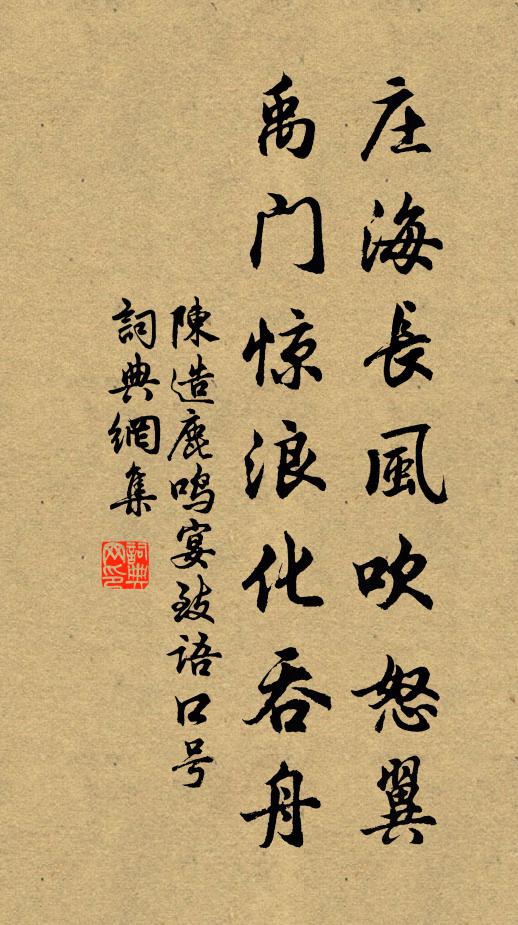 庄海長風吹怒翼
禹门惊浪化吞舟
陳造鹿鸣宴致语口号
詞典網集
詞典網印